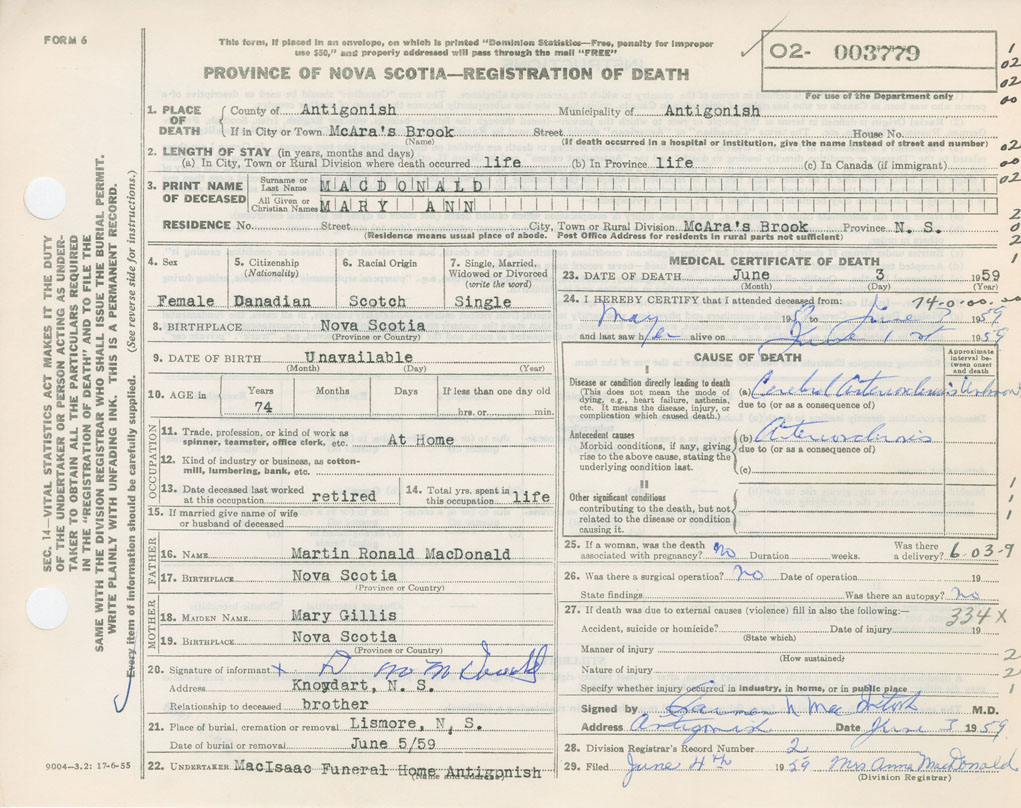 FORM 6
This form, if placed in an envelope, on which is printed "Dominion Statistics—Free, penalty for improper
use $50," and properly addressed will pass through the mail "FREE"
02- 003779
For use of the Department only
PROVINCE OF NOVA SCOTIA—REGISTRATION OF DEATH
1. PLACE OF DEATH { County of Antigonish Municipality of Antigonish
If in City or Town McAra's Brook Street House No.
(Name) (If death occurred in a hospital or institution, give the name instead of street and number)
2. LENGTH OF STAY (in years, months and days)
(a) In City, Town or Rural Division where death occurred life (b) In Province life (c) In Canada (if immigrant)
3. PRINT NAME OF DECEASED Surname or Last Name MACDONALD
All Given or Christian Names MARY ANN
RESIDENCE No. Street City, Town or Rural Division McAra's Brook Province N. S.
(Residence means usual place of abode. Post Office Address for residents in rural parts not sufficient)
4. Sex Female
5. Citizenship (Nationality) Danadian
6. Racial Origin Scotch
7. Single, Married, Widowed or Divorced (write the word) Single
8. BIRTHPLACE Nova Scotia
(Province or Country)
9. DATE OF BIRTH Unavailable
(Month) (Day) (Year)
10. AGE in Years 74 Months Days If less than one day old hrs. or min.
OCCUPATION
11. Trade, profession, or kind of work as spinner, teamster, office clerk, etc. At Home
12. Kind of industry or business, as cotton-mill, lumbering, bank, etc.
13. Date deceased last worked at this occupation retired
14. Total yrs. spent in this occupation life
15. If married give name of wife or husband of deceased
FATHER
16. NAME Martin Ronald MacDonald
17. BIRTHPLACE Nova Scotia
(Province or Country)
MOTHER
18. MAIDEN NAME Mary Gillis
19. BIRTHPLACE Nova Scotia
(Province or Country)
20. Signature of informant x
Address Knoydart, N. S.
Relationship to deceased brother
21. Place of burial, cremation or removal Lismore, N. S.
Date of burial or removal June 5/59
22. UNDERTAKER MacIsaac Funeral Home Antigonish
(Name and address)
9004—3.2: 17-6-55
MEDICAL CERTIFICATE OF DEATH
23. DATE OF DEATH June 3 1959
(Month) (Day) (Year)
74-0-00-00
24. I HEREBY CERTIFY that I attended deceased from:
May 195 to June 3 1959
and last saw her alive on June 1st 1959
CAUSE OF DEATH
Approximate interval between onset and death
I
Disease or condition directly leading to death
(This does not mean the mode of dying, e.g., heart failure, asthenia, etc. It means the disease, injury, or complication which caused death.)
(a) Cerebral Arteriosclerosis Unknown
due to (or as a consequence of)
Antecedent causes
Morbid conditions, if any, giving rise to the above cause, stating the underlying condition last.
(b) Arteriosclerosis
due to (or as a consequence of)
(c)
II
Other significant conditions
contributing to the death, but not related to the disease or condition causing it.
25. If a woman, was the death associated with pregnancy? no Duration weeks. Was there a delivery? 6-03-9
26. Was there a surgical operation? no Date of operation 19
State findings Was there an autopsy? no
27. If death was due to external causes (violence) fill in also the following:—
334X
Accident, suicide or homicide? Date of injury 19
(State which)
Manner of injury
(How sustained)
Nature of injury
Specify whether injury occurred in industry, in home, or in public place
Signed by M.D.
Address Antigonish Date June 3 1959
28. Division Registrar's Record Number 2
29. Filed June 4th 1959 Mrs Anna MacDonald
(Division Registrar)
SEC. 14—VITAL STATISTICS ACT MAKES IT THE DUTY
OF THE UNDERTAKER OR PERSON ACTING AS UNDER-
TAKER TO OBTAIN ALL THE PARTICULARS REQUIRED
IN THE "REGISTRATION OF DEATH" AND TO FILE THE
SAME WITH THE DIVISION REGISTRAR WHO SHALL ISSUE THE BURIAL PERMIT.
WRITE PLAINLY WITH UNFADING INK. THIS IS A PERMANENT RECORD.
Every item of information should be carefully supplied. (See reverse side for instructions.)
1
02
02
00
02
00
02
2
0
2
1
1
1
1
2
2
1